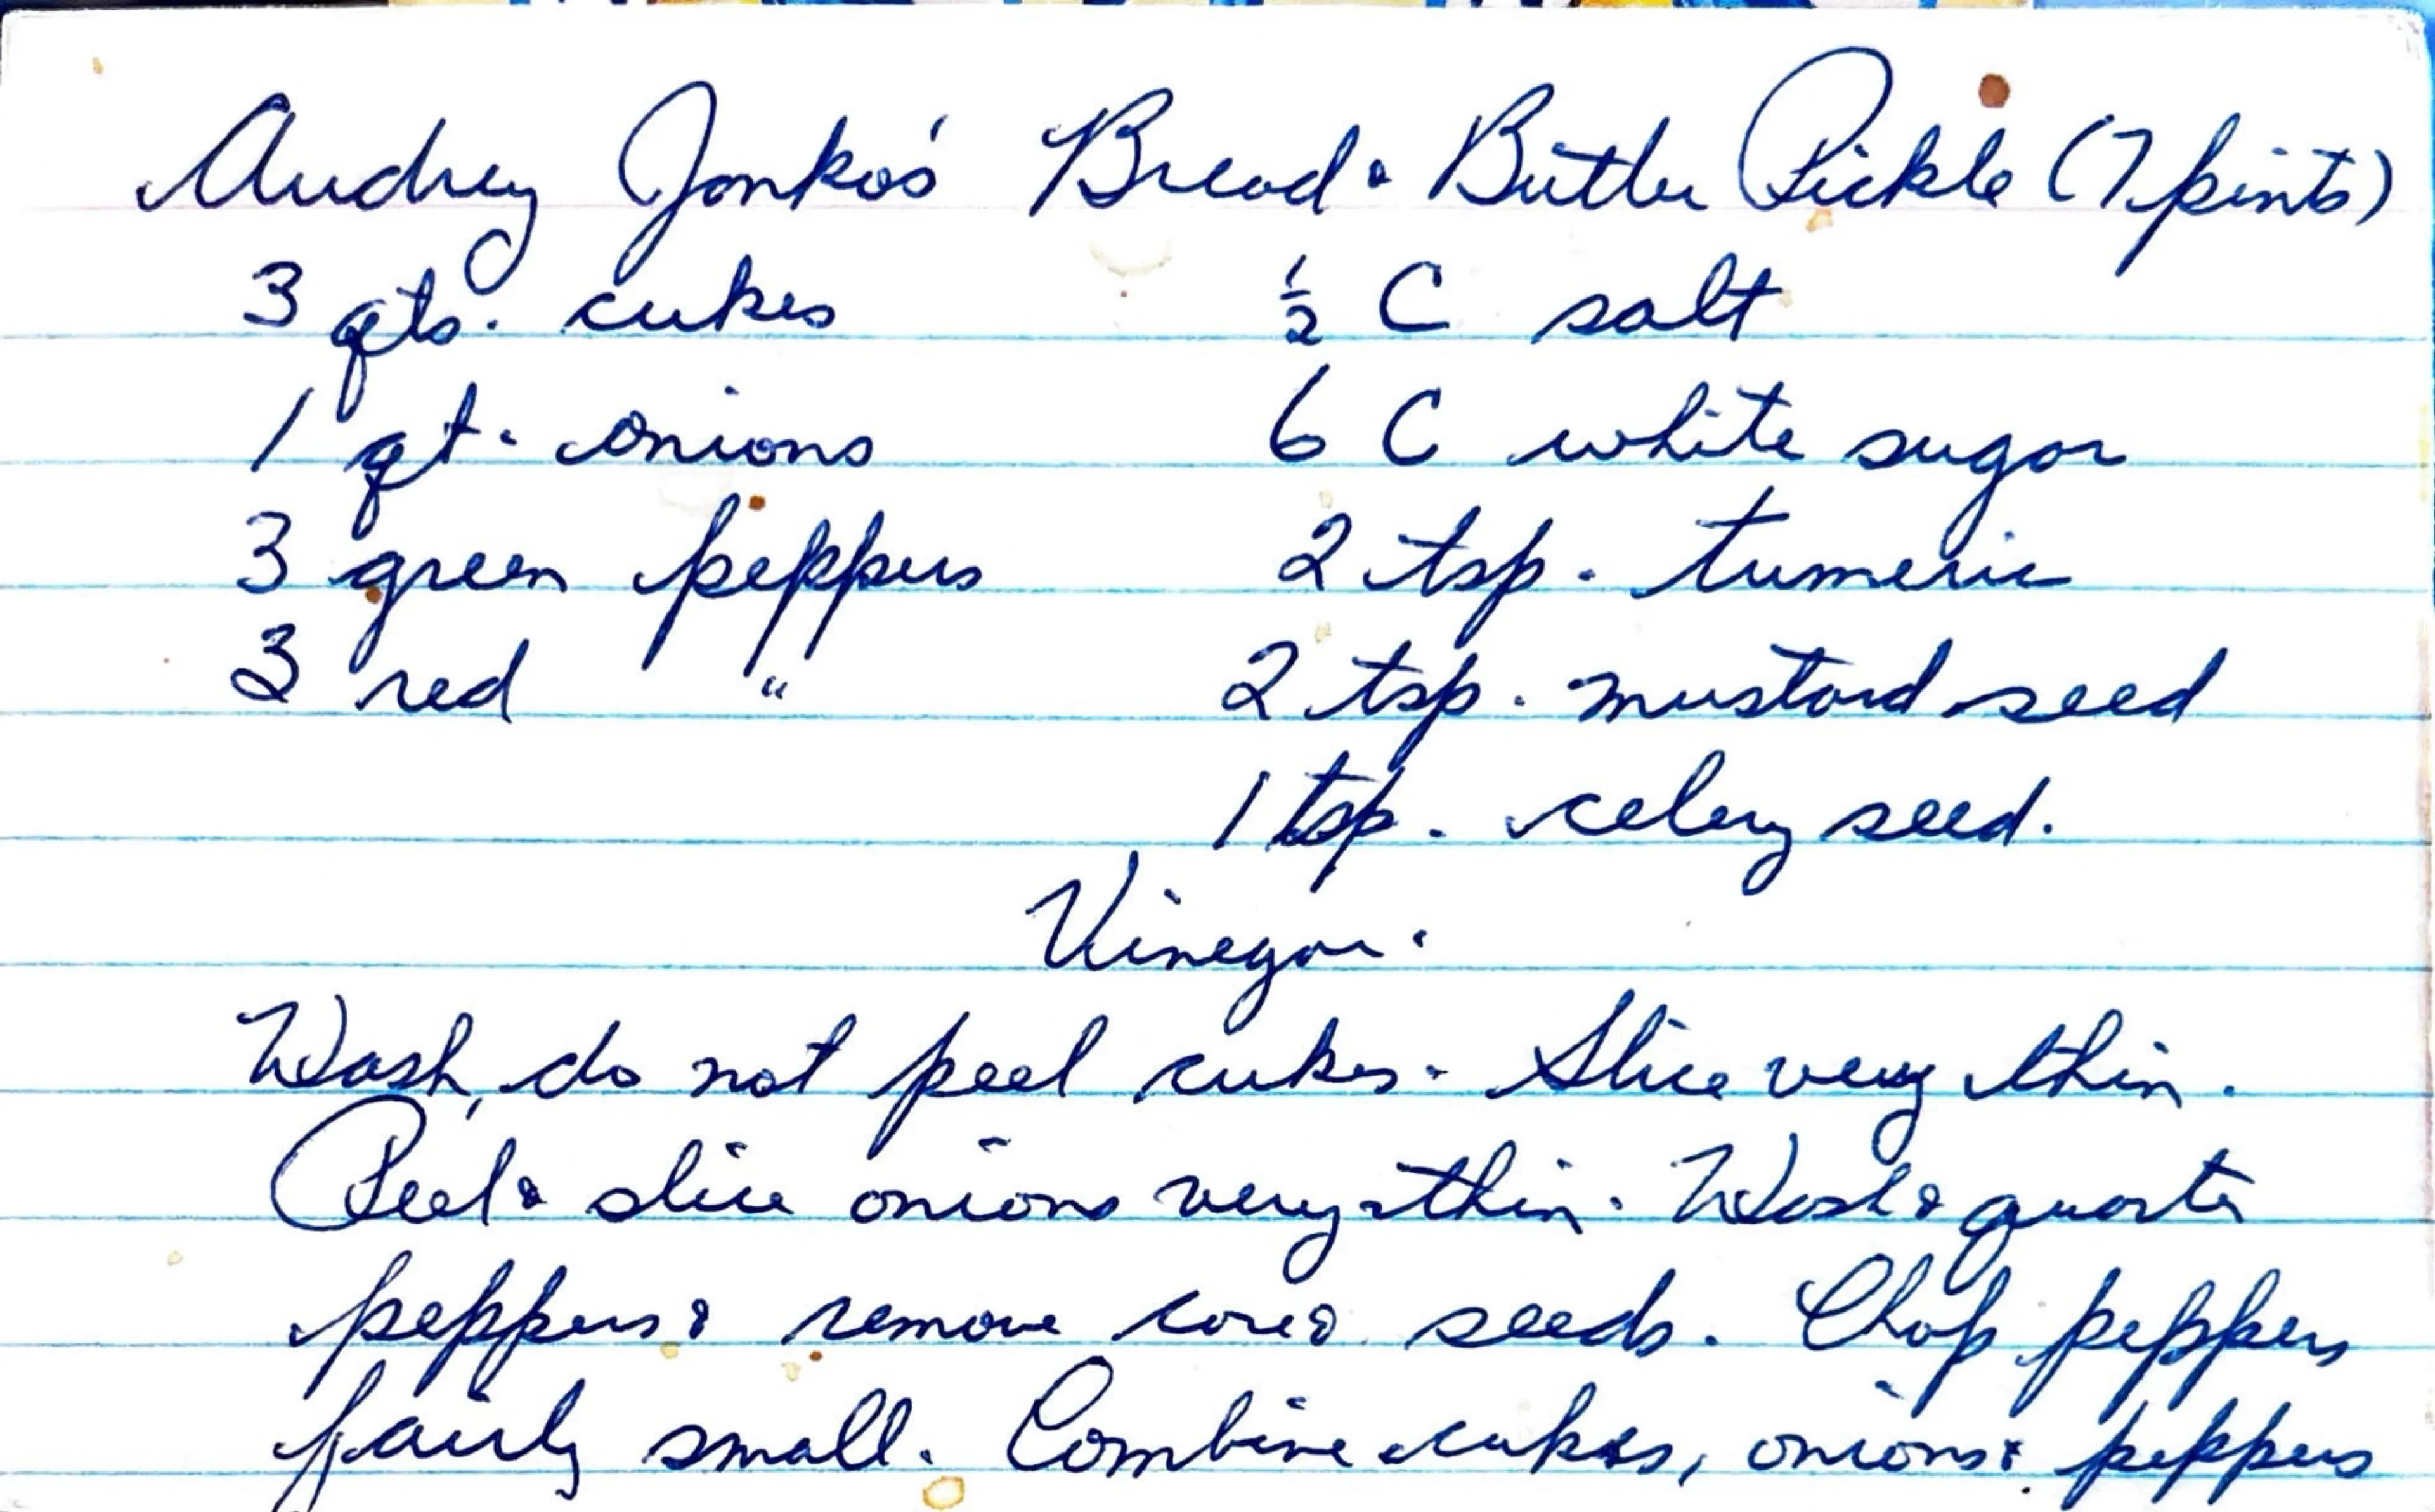 Audrey Jonko's Bread & Butter Pickle (7 pints)
3 qts. cukes ½ C salt
1 qt. onions 6 C white sugar
3 green peppers 2 tsp. tumeric
3 red " 2 tsp. mustard seed
1 tsp. celery seed.
Vinegar.
Wash, do not peel cukes. Slice very thin.
Peel & slice onions very thin. Wash & quarter
peppers & remove core & seeds. Chop peppers
fairly small. Combine cukes, onions & peppers